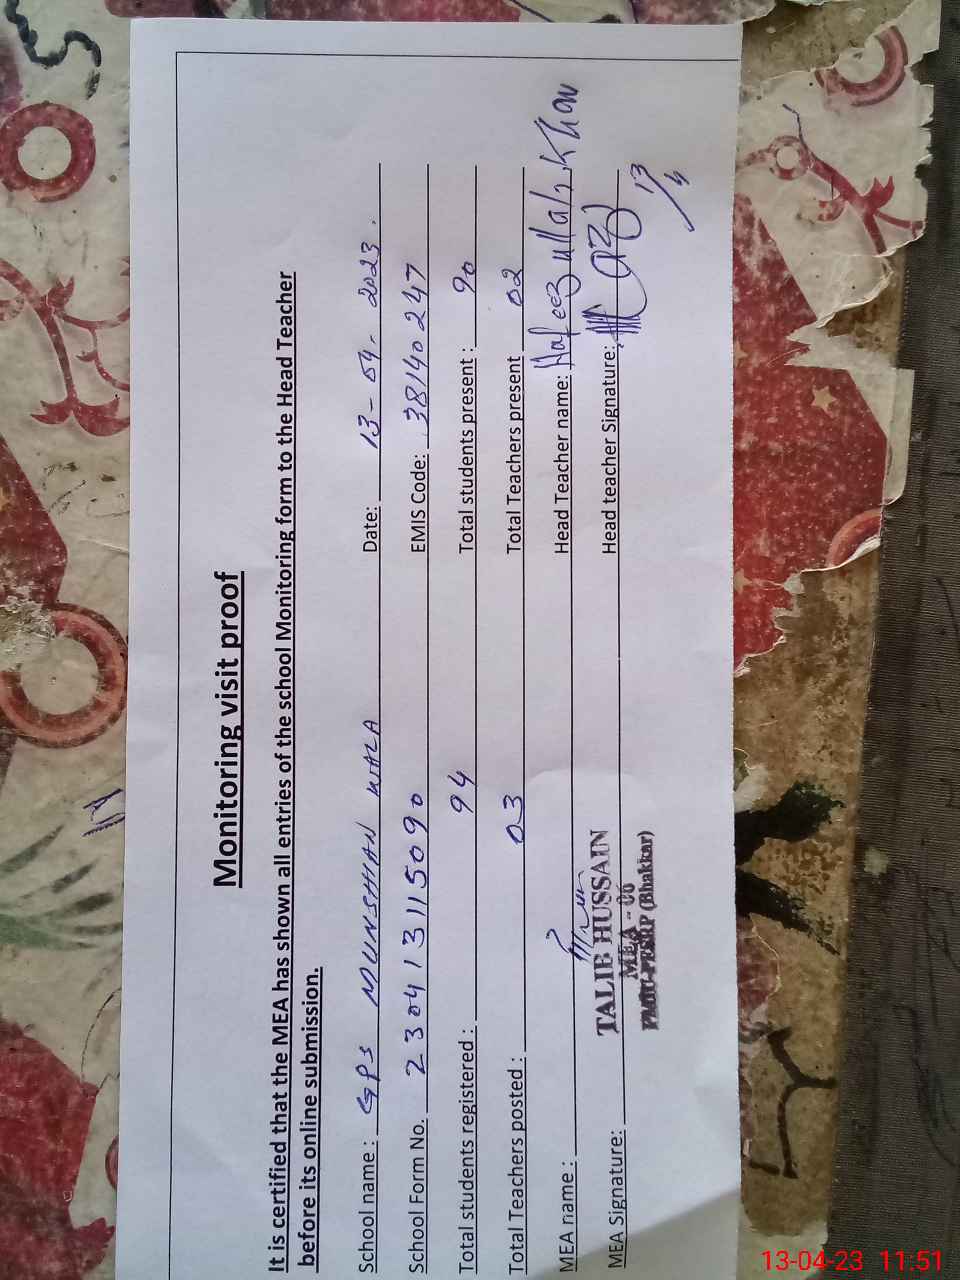 Monitoring visit proof
It is certified that the MEA has shown all entries of the school Monitoring form to the Head Teacher
before its online submission.
School name : GPS MUNSHIAN WALA Date: 13-04-2023.
School Form No. 230413115090 EMIS Code: 38140247
Total students registered : 94 Total students present : 90
Total Teachers posted : 03 Total Teachers present 02
MEA name : Head Teacher name: Hafeez ullah Khan
MEA Signature: Head teacher Signature:
13/4
TALIB HUSSAIN
MEA - 06
(Bhakkar)
13-04-23 11:51